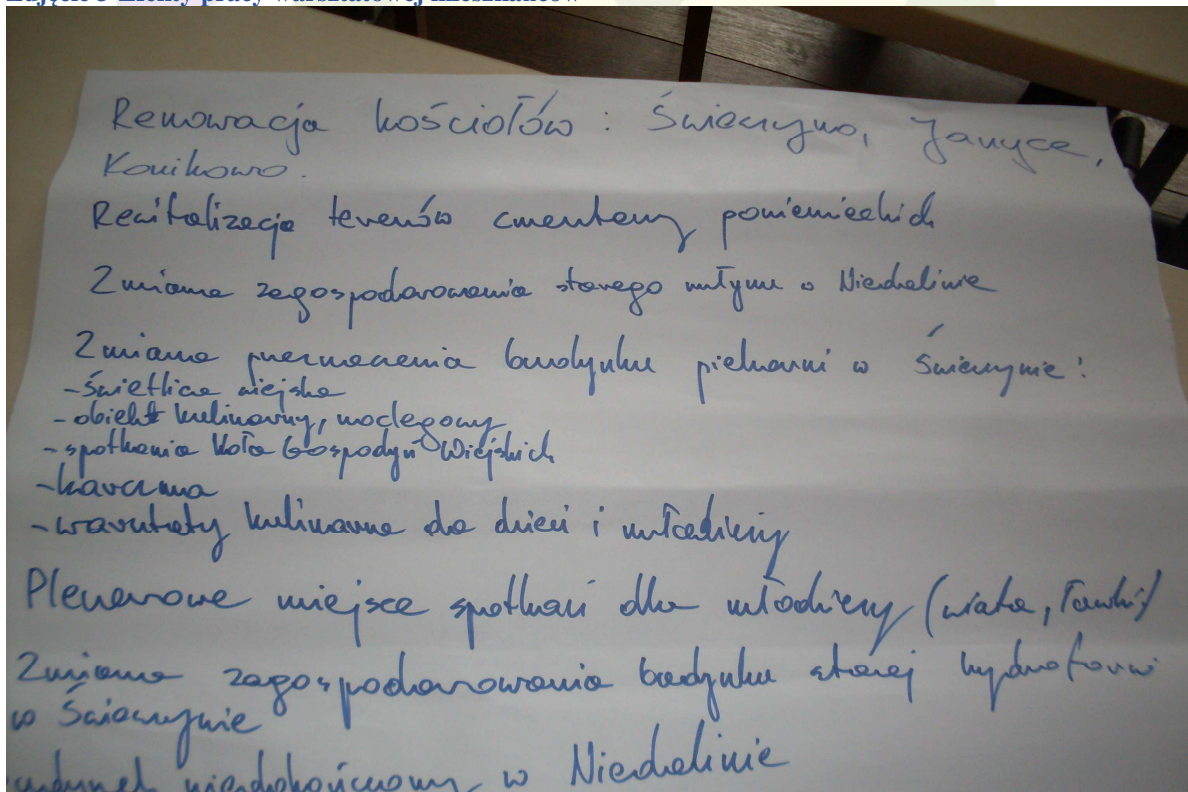 Zdjęcie 3 Efekty pracy warsztatowej mieszkańców
Renowacja kościołów: Świeszyno, Jarzyce,
Konikowo.
Rewitalizacja terenów cmentarzy poniemieckich
Zmiana zagospodarowania starego młyna w Niedalinie
Zmiana przeznaczenia budynku piekarni w Świeszynie:
- świetlica wiejska
- obiekt kulinarny, noclegowy
- spotkania Koła Gospodyń Wiejskich
- karczma
- warsztaty kulinarne dla dzieci i młodzieży
Plenerowe miejsce spotkań dla młodzieży (wiata, ławki)
Zmiana zagospodarowania budynku starej hydroforni
w Świeszynie
niedokończony w Niedalinie